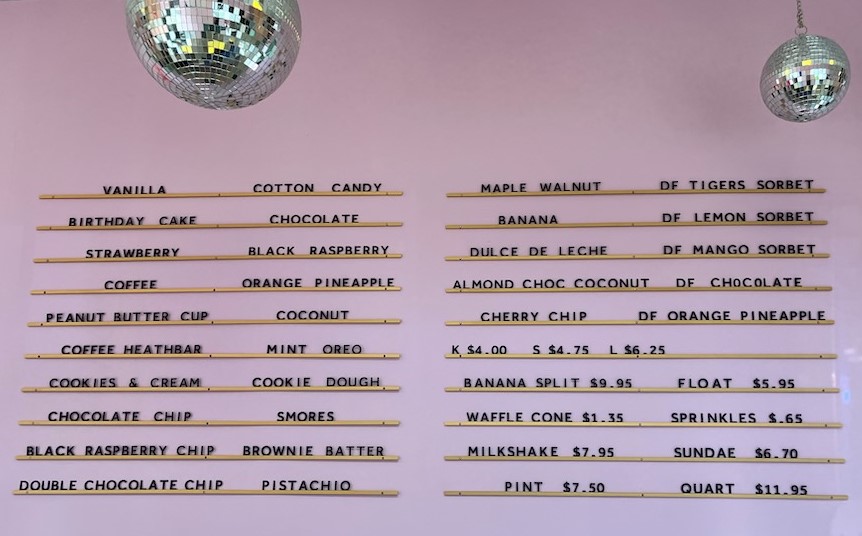 VANILLA COTTON CANDY
BIRTHDAY CAKE CHOCOLATE
STRAWBERRY BLACK RASPBERRY
COFFEE ORANGE PINEAPPLE
PEANUT BUTTER CUP COCONUT
COFFEE HEATHBAR MINT OREO
COOKIES & CREAM COOKIE DOUGH
CHOCOLATE CHIP SMORES
BLACK RASPBERRY CHIP BROWNIE BATTER
DOUBLE CHOCOLATE CHIP PISTACHIO
MAPLE WALNUT DF TIGERS SORBET
BANANA DF LEMON SORBET
DULCE DE LECHE DF MANGO SORBET
ALMOND CHOC COCONUT DF CHOCOLATE
CHERRY CHIP DF ORANGE PINEAPPLE
K $4.00 S $4.75 L $6.25
BANANA SPLIT $9.95 FLOAT $5.95
WAFFLE CONE $1.35 SPRINKLES $.65
MILKSHAKE $7.95 SUNDAE $6.70
PINT $7.50 QUART $11.95